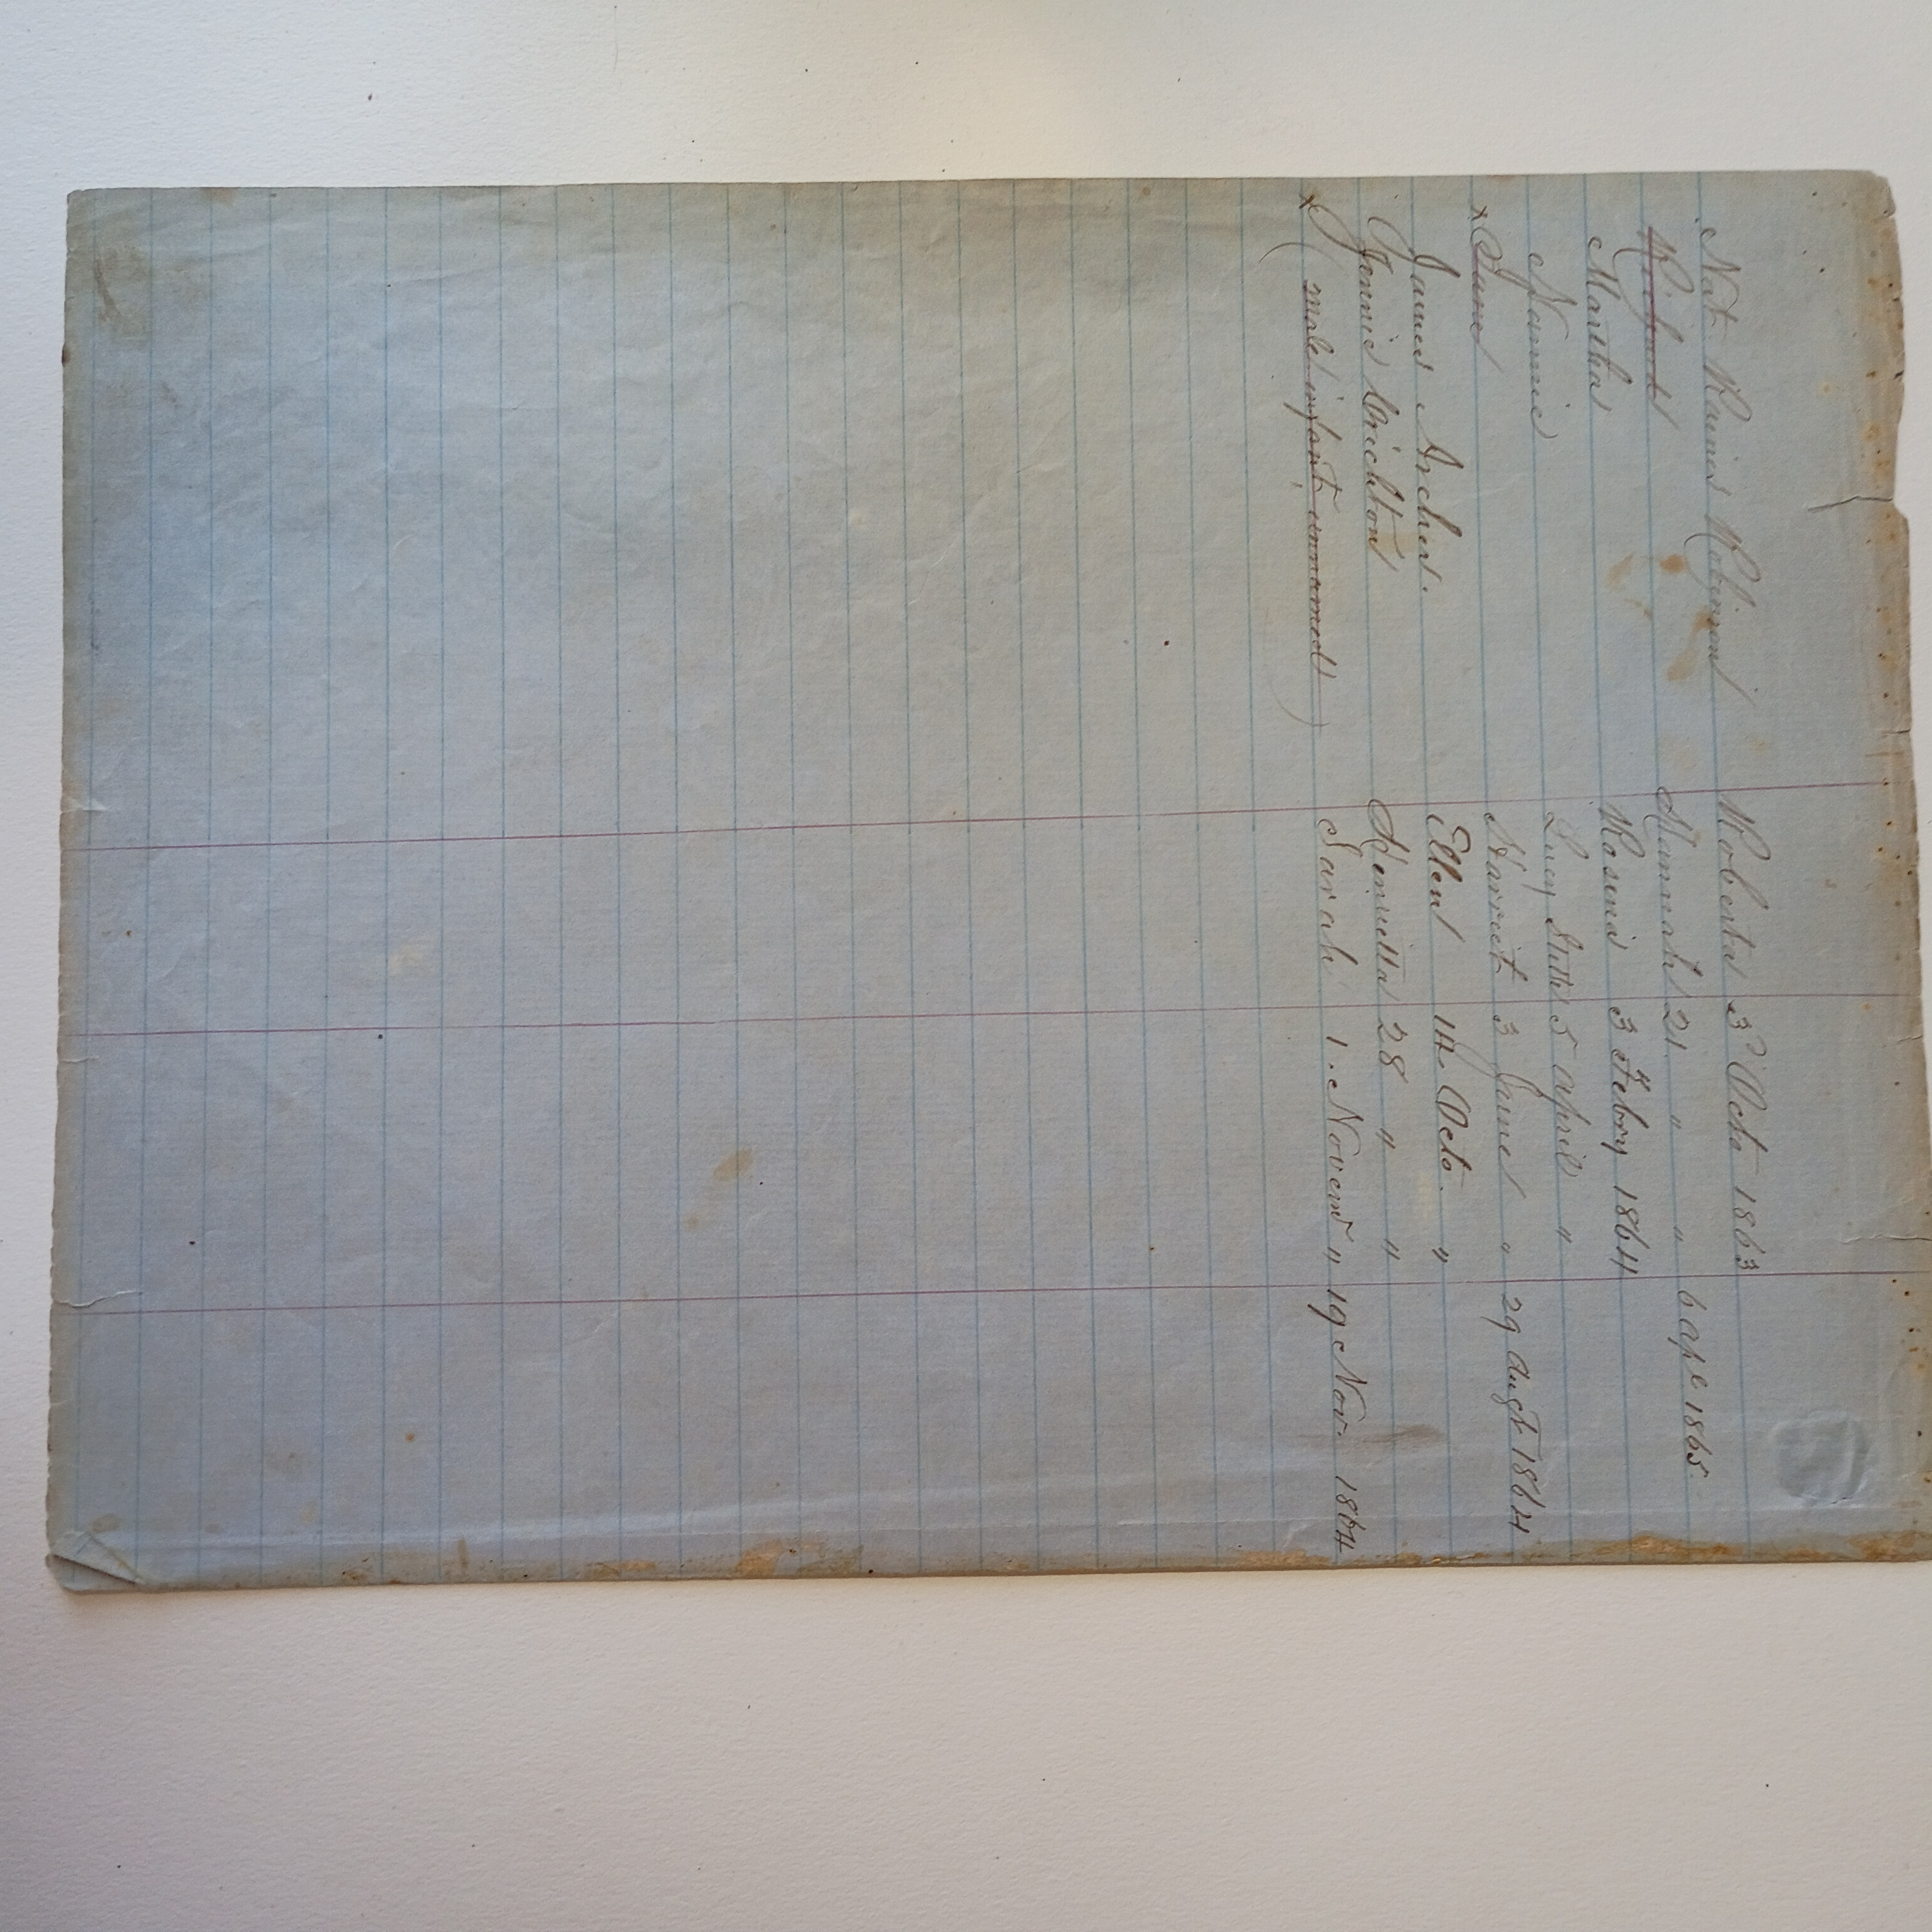 Nat Raines Robinson Roberta 3d Octo 1863
Hannah 21 " " 6 ape 1865.
Martha Rosena 3d Febry 1864
Nannie Lucy Still 5 april "
x Jane Harriet 3 June " 29 Augst 1864
James Archer. Ellen 14. Octo. "
Jennie Crichton Henrietta 28 " "
x (male infant unnamed) Sarah 1. Novemr " 19 Nov. 1864